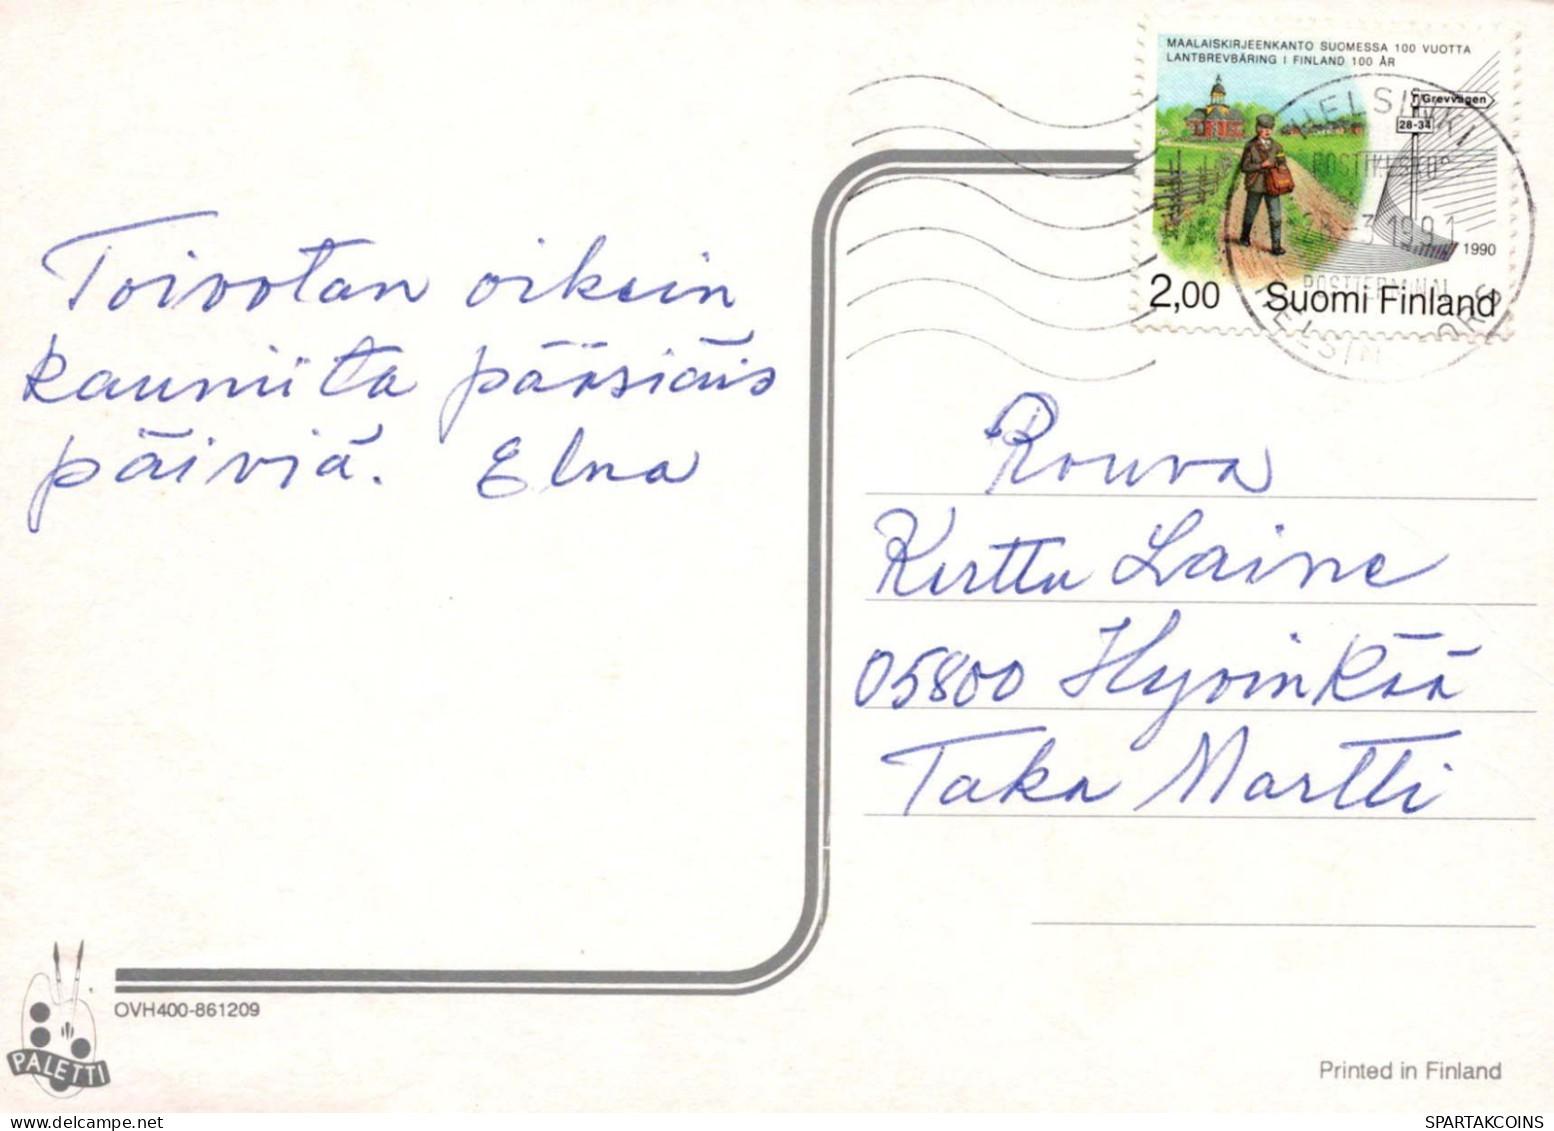 MAALAISKIRJEENKANTO SUOMESSA 100 VUOTTA
LANTBREVBÄRING I FINLAND 100 ÅR
Grevvägen
28-34
1990
2,00 Suomi Finland
HELSINKI
POSTIKESKUS
-3.1991
POSTTERMINAL
HELSINGFORS
Toivotan oikein
kauniita pääsiäis
päiviä. Elna
Rouva
Kerttu Laine
05800 Hyvinkää
Taka Martti
OVH400-861209
PALETTI
Printed in Finland
SPARTAKCOINS